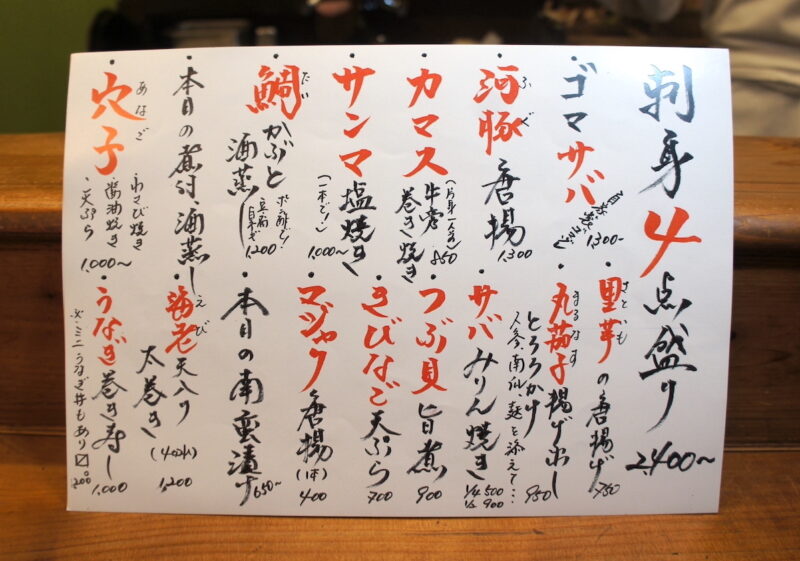 刺身4点盛り 2,400〜
・ゴマサバ 1,300〜
・河豚 唐揚 1,300
ふぐ
・カマス 牛蒡巻き焼き 850
・サンマ 塩焼き
(一本で!) 1,000〜
・鯛 かぶと酒蒸し 1,200
たい
・本日の煮付・酒蒸し
・穴子
あなご
・わさび焼き
・醤油焼き
・天ぷら
1,000〜
・里芋の唐揚げ 750
さといも
・丸茄子 揚げ出し
まるなす
とろろかけ 950
・サバみりん焼き 1/4 500
1/2 900
・つぶ貝 旨煮 900
・きびなご 天ぷら 700
・マジャク 唐揚(1本) 400
・本日の南蛮漬け 650〜
・海老天入り
えび
太巻き 1,200
・うなぎ巻き寿し 1,000
※ミニうなぎ丼もあり〼。